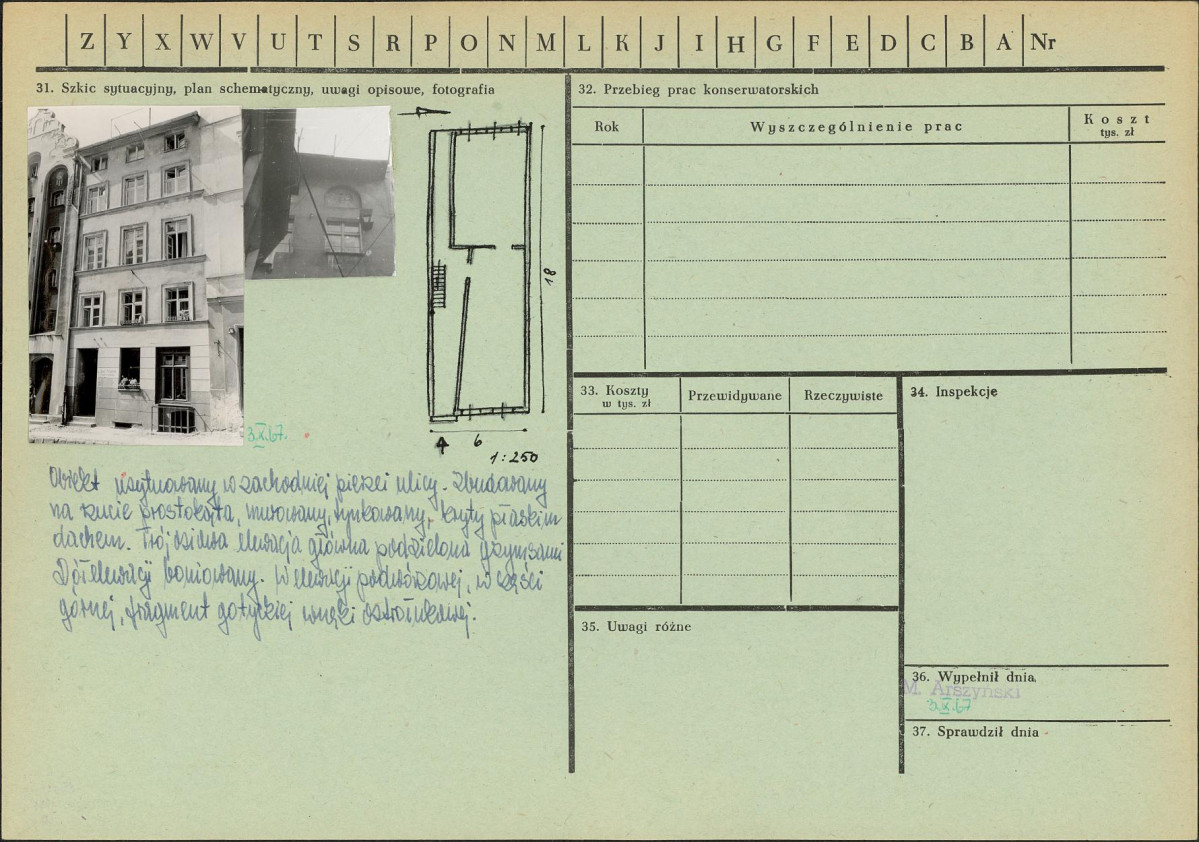 Z Y X W V U T S R P O N M L K J I H G F E D C B A Nr
31. Szkic sytuacyjny, plan schematyczny, uwagi opisowe, fotografia
18
6
1:250
3.X.67.
Obiekt usytuowany w zachodniej pierzei ulicy. Zbudowany
na rzucie prostokąta, murowany, tynkowany, kryty płaskim
dachem. Trójosiowa elewacja główna podzielona gzymsami
Dół elewacji boniowany. W elewacji podwórzowej, w części
górnej, fragment gotyckiej wnęki ostrołukowej.
32. Przebieg prac konserwatorskich
Rok
Wyszczególnienie prac
Koszt
tys. zł
33. Koszty
w tys. zł
Przewidywane
Rzeczywiste
34. Inspekcje
35. Uwagi różne
36. Wypełnił dnia
M. Arszyński
3.X.67
37. Sprawdził dnia